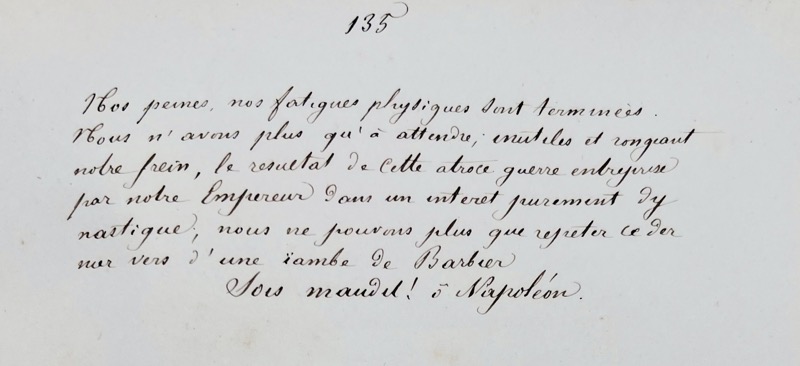 135
Nos peines, nos fatigues physiques sont terminées.
Nous n'avons plus qu'à attendre, inutiles et rongeant
notre frein, le resultat de cette atroce guerre entreprise
par notre Empereur dans un interet purement dy
nastique, nous ne pouvons plus que repeter ce der
nier vers d'une ïambe de Barbier
Sois maudit! ô Napoléon.